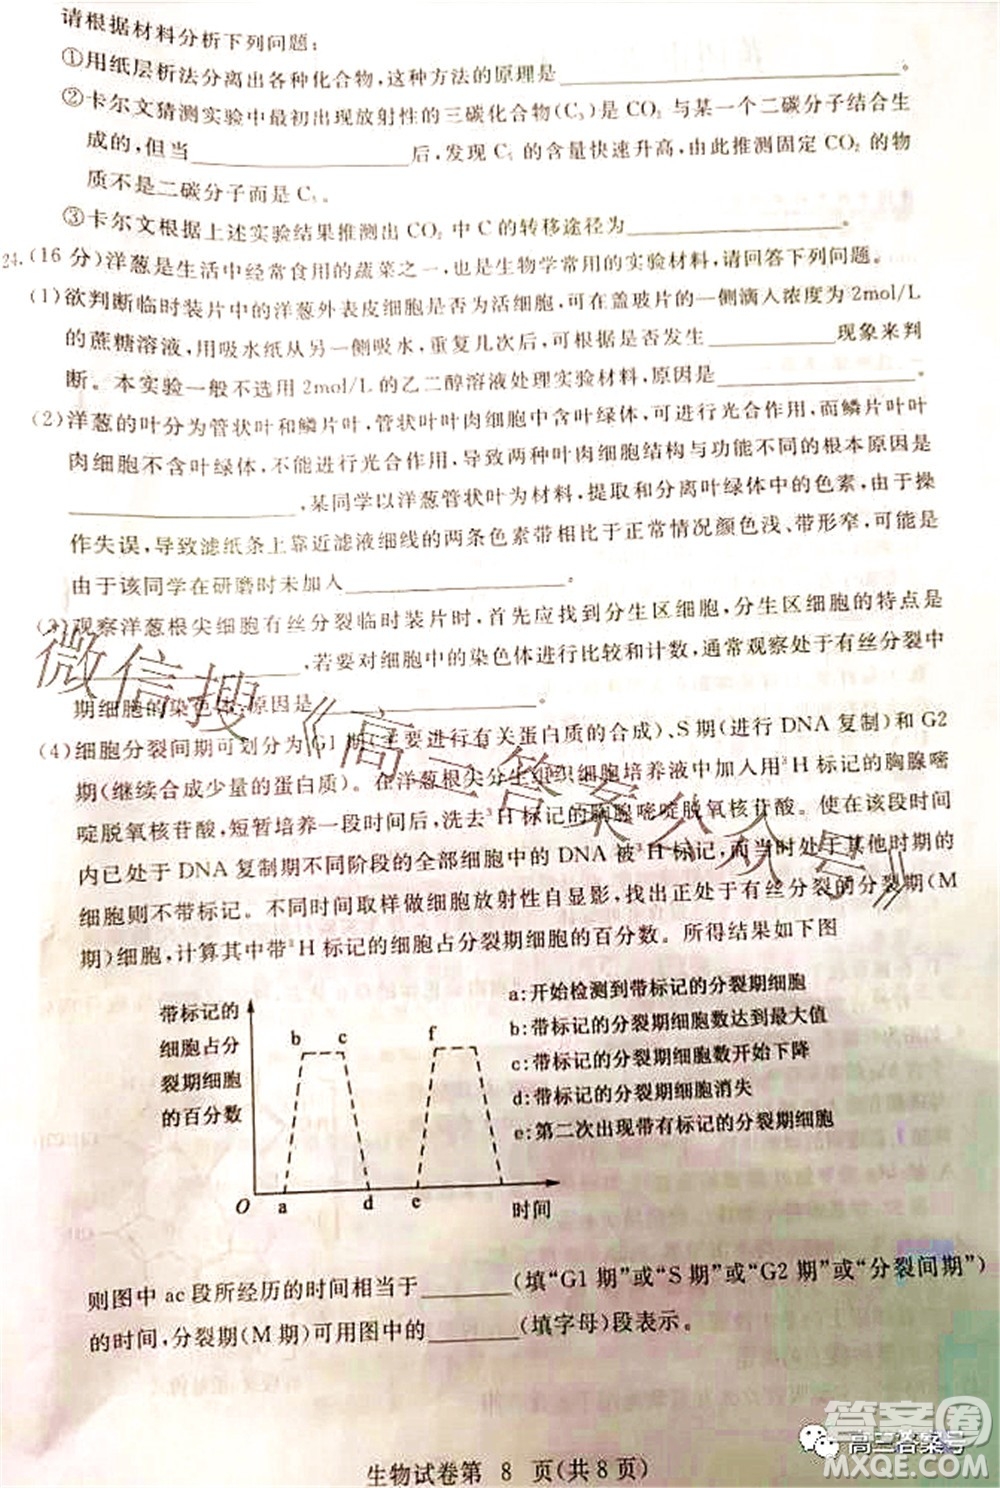 请根据材料分析下列问题：
①用纸层析法分离出各种化合物，这种方法的原理是____________。
②卡尔文猜测实验中最初出现放射性的三碳化合物(C₃)是CO₂与某一个二碳分子结合生
成的，但当____________后，发现C₅的含量快速升高，由此推测固定CO₂的物
质不是二碳分子而是C₅。
③卡尔文根据上述实验结果推测出CO₂中C的转移途径为____________。
24.(16分)洋葱是生活中经常食用的蔬菜之一，也是生物学常用的实验材料，请回答下列问题。
(1)欲判断临时装片中的洋葱外表皮细胞是否为活细胞，可在盖玻片的一侧滴入浓度为2mol/L
的蔗糖溶液，用吸水纸从另一侧吸水，重复几次后，可根据是否发生____________现象来判
断。本实验一般不选用2mol/L的乙二醇溶液处理实验材料，原因是____________。
(2)洋葱的叶分为管状叶和鳞片叶，管状叶叶肉细胞中含叶绿体，可进行光合作用，而鳞片叶叶
肉细胞不含叶绿体，不能进行光合作用，导致两种叶肉细胞结构与功能不同的根本原因是
____________，某同学以洋葱管状叶为材料，提取和分离叶绿体中的色素，由于操
作失误，导致滤纸条上靠近滤液细线的两条色素带相比于正常情况颜色浅、带形窄，可能是
由于该同学在研磨时未加入____________。
(3)观察洋葱根尖细胞有丝分裂临时装片时，首先应找到分生区细胞，分生区细胞的特点是
____________，若要对细胞中的染色体进行比较和计数，通常观察处于有丝分裂中
期细胞的染色体，原因是____________。
(4)细胞分裂间期可划分为G1期(主要进行有关蛋白质的合成)、S期(进行DNA复制)和G2
期(继续合成少量的蛋白质)。在洋葱根尖分生组织细胞培养液中加入用³H标记的胸腺嘧
啶脱氧核苷酸，短暂培养一段时间后，洗去³H标记的胸腺嘧啶脱氧核苷酸。使在该段时间
内已处于DNA复制期不同阶段的全部细胞中的DNA被³H标记，而当时处于其他时期的
细胞则不带标记。不同时间取样做细胞放射性自显影，找出正处于有丝分裂的分裂期(M
期)细胞，计算其中带³H标记的细胞占分裂期细胞的百分数。所得结果如下图
带标记的
细胞占分
裂期细胞
的百分数
b c f
O a d e 时间
a:开始检测到带标记的分裂期细胞
b:带标记的分裂期细胞数达到最大值
c:带标记的分裂期细胞数开始下降
d:带标记的分裂期细胞消失
e:第二次出现带有标记的分裂期细胞
则图中ac段所经历的时间相当于______(填“G1期”或“S期”或“G2期”或“分裂间期”)
的时间，分裂期(M期)可用图中的______(填字母)段表示。
生物试卷第 8 页(共8页)
微信搜《高三答案公众号》
高三答案号
答案圈
MXQE.COM